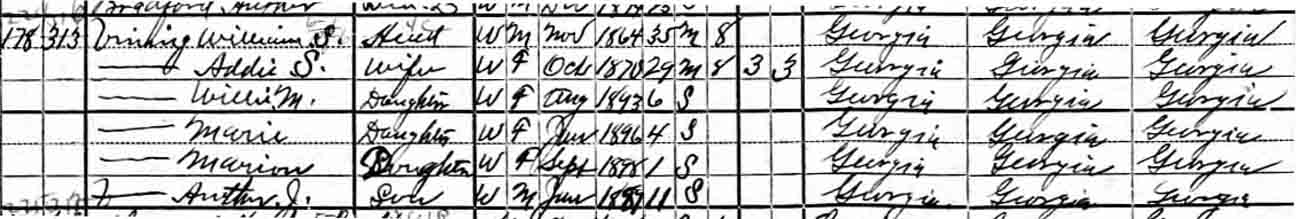 Bradford, Arthur
178 313 Vining William S. Head W M Nov 1864 35 M 8 Georgia Georgia Georgia
— Addie S. Wife W F Oct 1870 29 M 8 3 3 Georgia Georgia Georgia
— Willie M. Daughter W F Aug 1893 6 S Georgia Georgia Georgia
— Marie Daughter W F Jun 1896 4 S Georgia Georgia Georgia
— Marion Daughter W F Sept 1898 1 S Georgia Georgia Georgia
— Arthur J. Son W M Jun 1889 11 S Georgia Georgia Georgia